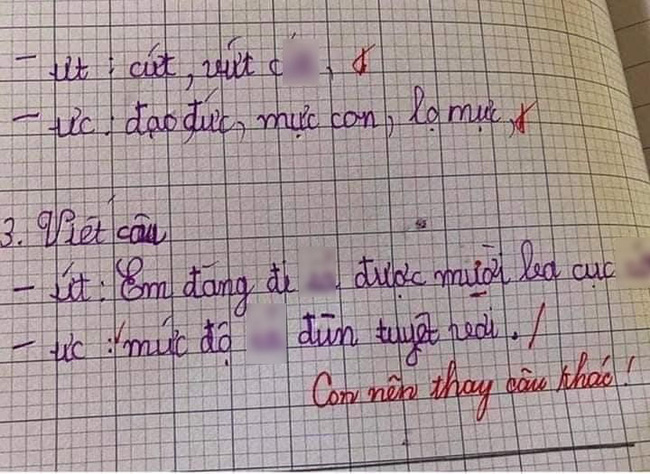 - ưt: cứt, vứt c
- ức: đạo đức, mực con, lọ mực,
3. Viết câu
- ứt: Em đang đi được mười ba cục
- ức: mức độ đùn tuyệt vời.
Con nên thay câu khác!